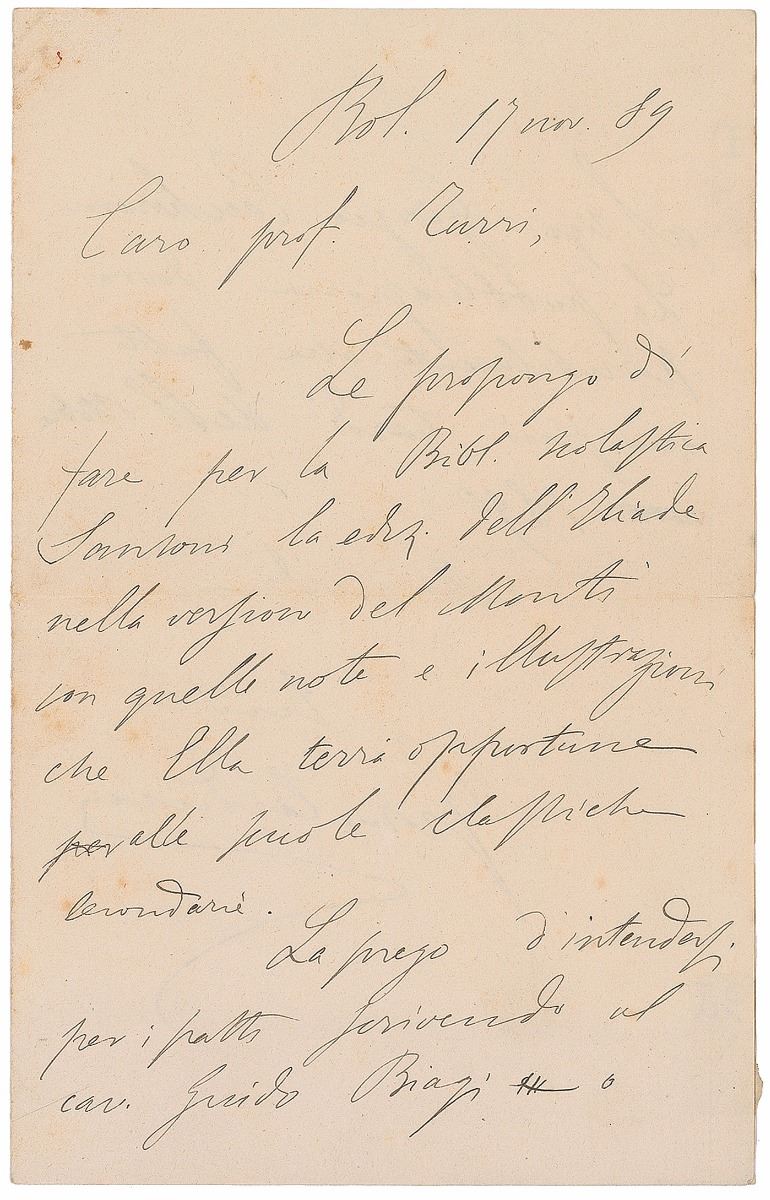 Bol. 17 nov. 89
Caro prof. Turri,
Le propongo di
fare per la Bibl. scolastica
Sansoni la ediz. dell'Iliade
nella versione del Monti
con quelle note e illustrazioni
che Ella terrà opportune
per alle scuole classiche
secondarie.
La prego d'intendersi
per i patti scrivendo al
cav. Guido Biagi o